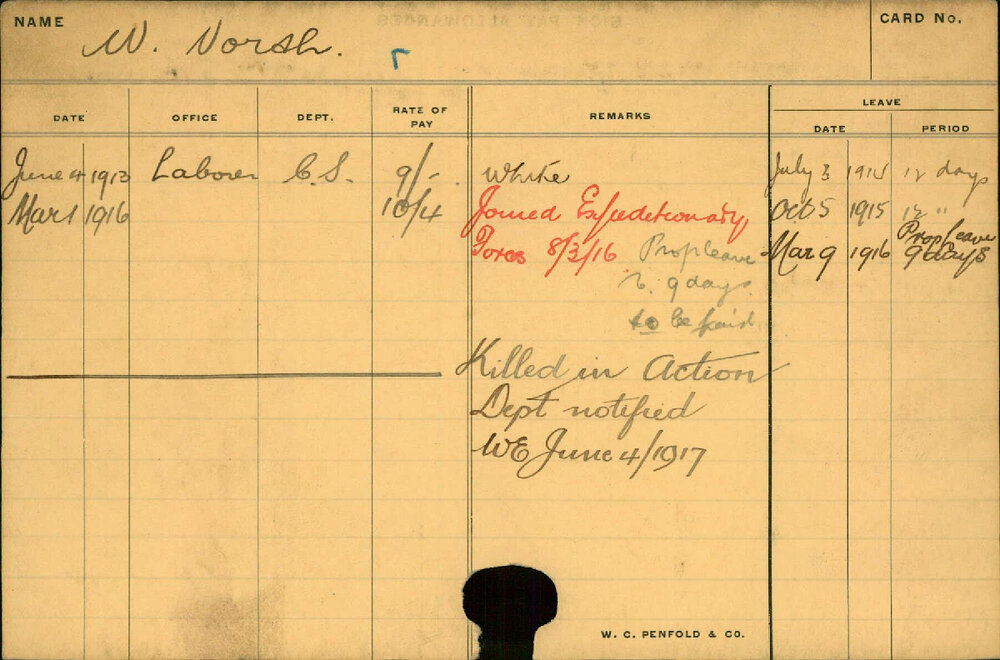 NAME
W. Norsh.
CARD No.
DATE
OFFICE
DEPT.
RATE OF PAY
REMARKS
LEAVE
DATE
PERIOD
June 4 1913 Laborer C.S. 9/- White July 3 1914 12 days
Mar 1 1916 10/4 Joined Expeditionary Oct 5 1915 12 "
Force 8/3/16 Prop leave Mar 9 1916 Prop leave 9 days
9 days
to be paid
Killed in Action
Dept notified
WE June 4/1917
W. C. PENFOLD & CO.